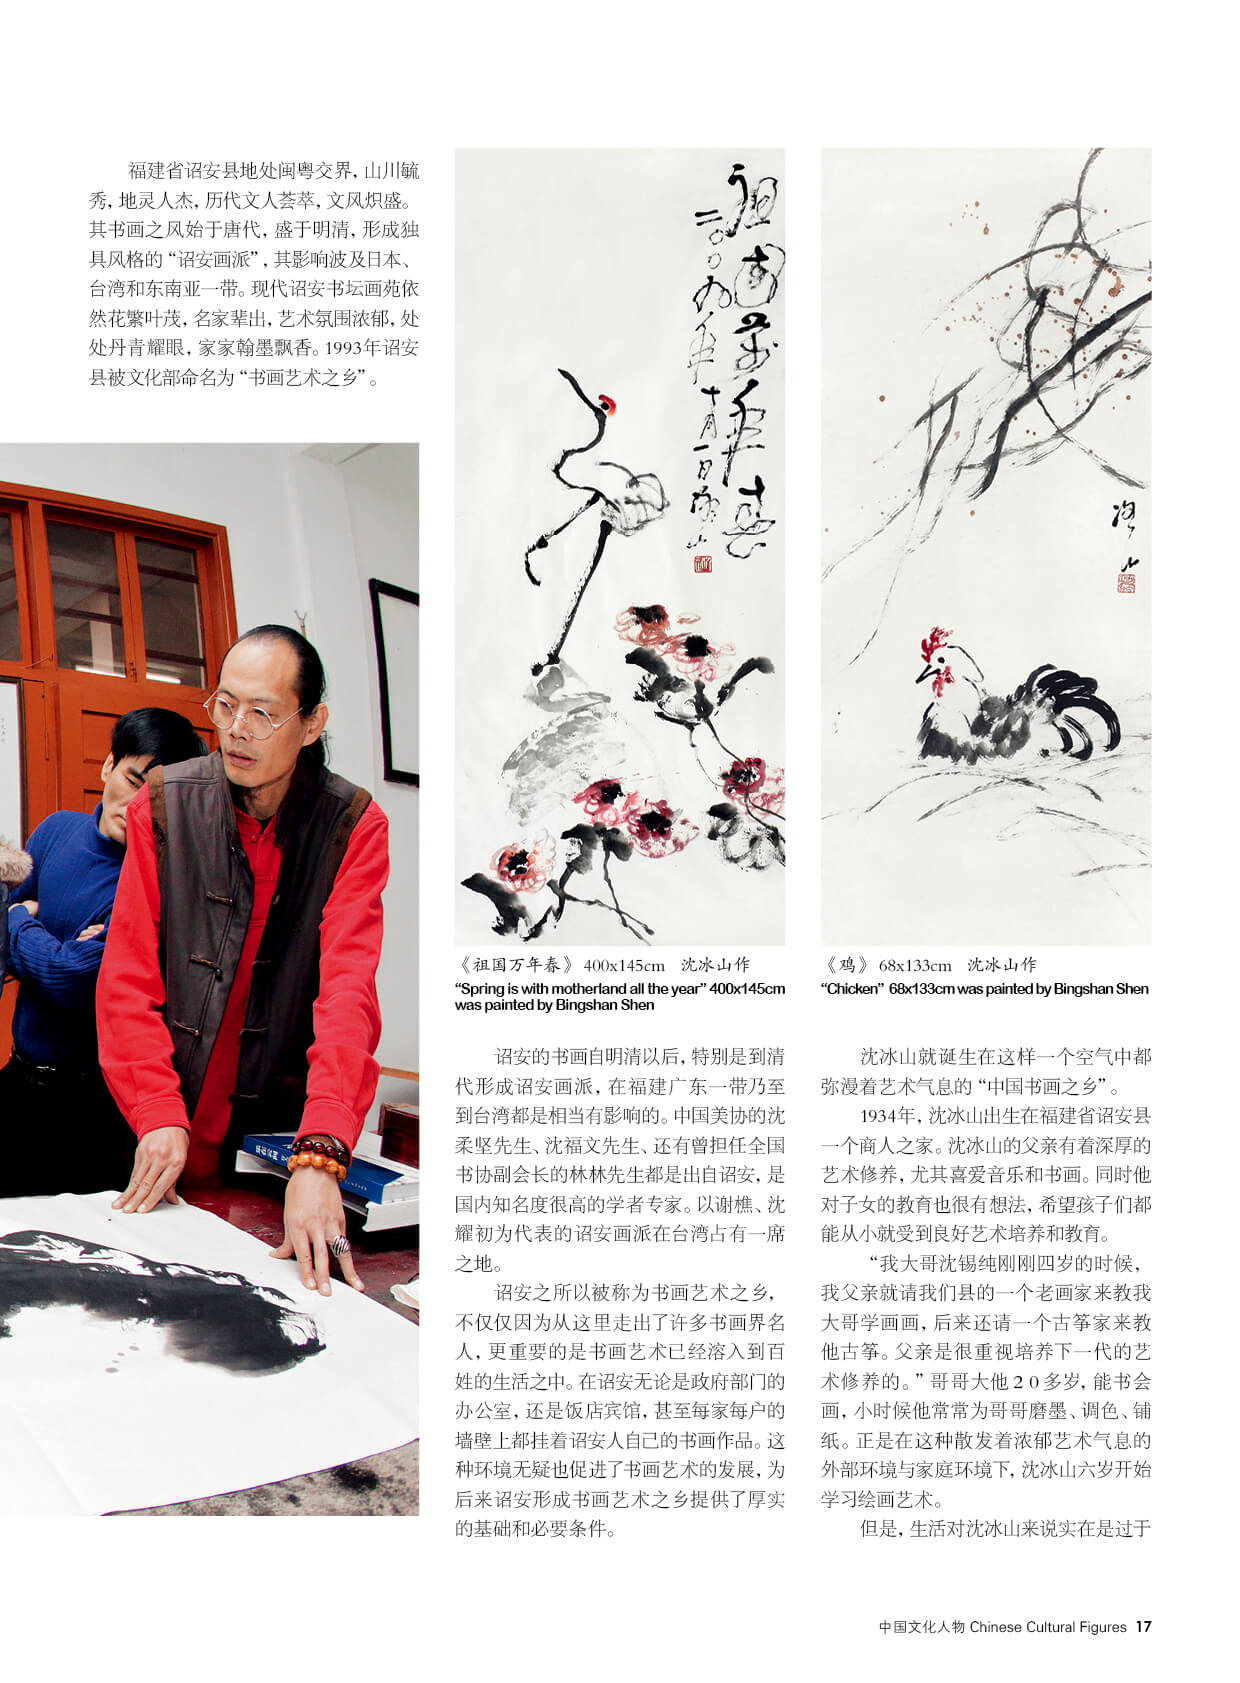 福建省诏安县地处闽粤交界，山川毓
秀，地灵人杰，历代文人荟萃，文风炽盛。
其书画之风始于唐代，盛于明清，形成独
具风格的“诏安画派”，其影响波及日本、
台湾和东南亚一带。现代诏安书坛画苑依
然花繁叶茂，名家辈出，艺术氛围浓郁，处
处丹青耀眼，家家翰墨飘香。1993年诏安
县被文化部命名为“书画艺术之乡”。
祖国万年春
二〇〇九年十月一日冰山
冰山
《祖国万年春》 400x145cm 沈冰山作
“Spring is with motherland all the year” 400x145cm
was painted by Bingshan Shen
《鸡》 68x133cm 沈冰山作
“Chicken” 68x133cm was painted by Bingshan Shen
诏安的书画自明清以后，特别是到清
代形成诏安画派，在福建广东一带乃至
到台湾都是相当有影响的。中国美协的沈
柔坚先生、沈福文先生、还有曾担任全国
书协副会长的林林先生都是出自诏安，是
国内知名度很高的学者专家。以谢樵、沈
耀初为代表的诏安画派在台湾占有一席
之地。
诏安之所以被称为书画艺术之乡，
不仅仅因为从这里走出了许多书画界名
人，更重要的是书画艺术已经溶入到百
姓的生活之中。在诏安无论是政府部门的
办公室，还是饭店宾馆，甚至每家每户的
墙壁上都挂着诏安人自己的书画作品。这
种环境无疑也促进了书画艺术的发展，为
后来诏安形成书画艺术之乡提供了厚实
的基础和必要条件。
沈冰山就诞生在这样一个空气中都
弥漫着艺术气息的“中国书画之乡”。
1934年，沈冰山出生在福建省诏安县
一个商人之家。沈冰山的父亲有着深厚的
艺术修养，尤其喜爱音乐和书画。同时他
对子女的教育也很有想法，希望孩子们都
能从小就受到良好艺术培养和教育。
“我大哥沈锡纯刚刚四岁的时候，
我父亲就请我们县的一个老画家来教我
大哥学画画，后来还请一个古筝家来教
他古筝。父亲是很重视培养下一代的艺
术修养的。”哥哥大他20多岁，能书会
画，小时候他常常为哥哥磨墨、调色、铺
纸。正是在这种散发着浓郁艺术气息的
外部环境与家庭环境下，沈冰山六岁开始
学习绘画艺术。
但是，生活对沈冰山来说实在是过于
中国文化人物 Chinese Cultural Figures 17